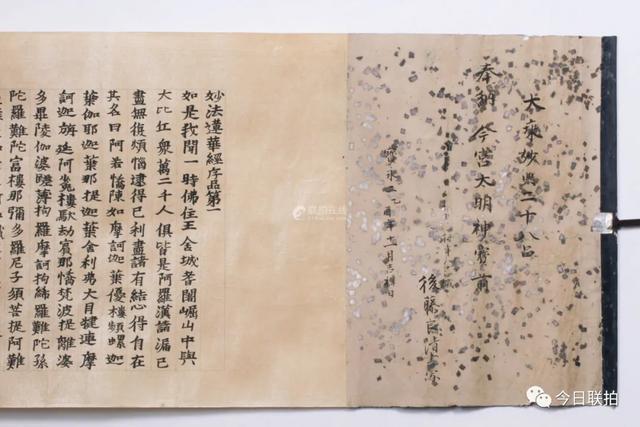 大乘妙典二十八品
奉納 今宮大明神寶前
後藤
永二乙酉年十一月吉祥日
妙法蓮華經序品第一
如是我聞一時佛住王舍城耆闍崛山中與
大比丘眾萬二千人俱皆是阿羅漢諸漏已
盡無復煩惱逮得已利盡諸有結心得自在
其名曰阿若憍陳如摩訶迦葉優樓頻螺迦
葉伽耶迦葉那提迦葉舍利弗大目揵連摩
訶迦旃延阿㝹樓馱劫賓那憍梵波提離婆
多畢陵伽婆蹉薄拘羅摩訶拘絺羅難陀孫
陀羅難陀富樓那彌多羅尼子須菩提阿難
联拍在线
今日联拍